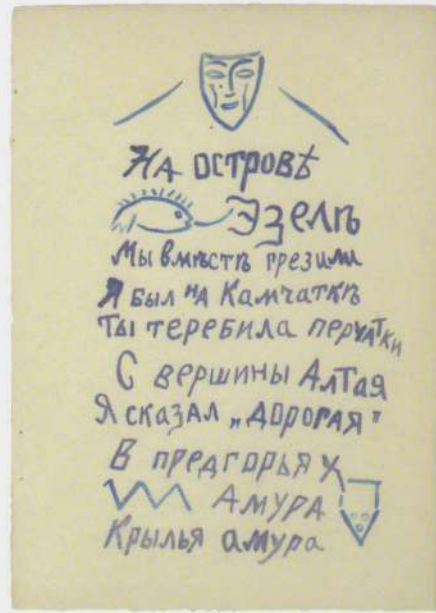 На островѣ
Эзелѣ
Мы вмѣстѣ грезили
Я был на Камчаткѣ
Ты теребила перчатки
С вершины Алтая
Я сказал „Дорогая"
В предгорьях
Амура
Крылья амура